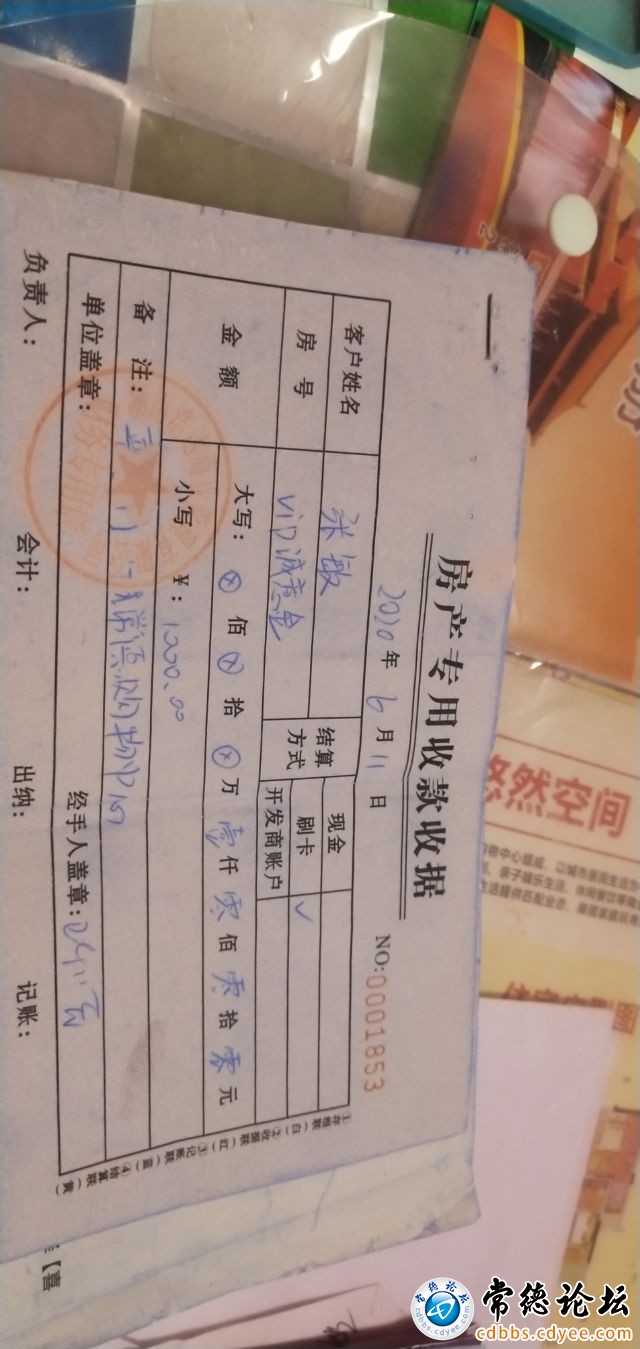 房产专用收款收据
2020年6月11日
NO:0001853
客户姓名 张敏
结算方式
现金
刷卡 ✓
开发商账户
房号 VIP诚意金
金额
大写: ⊗佰⊗拾⊗万壹仟零佰零拾零元
小写 ¥: 1000.00
备注: 购物中心
单位盖章:
经手人盖章:
负责人:
会计:
出纳:
记账:
①存根联(白)②收据联(红)③记账联(蓝)④结算联(黄)
悠然空间
常德论坛
cdbbs.cdyee.com